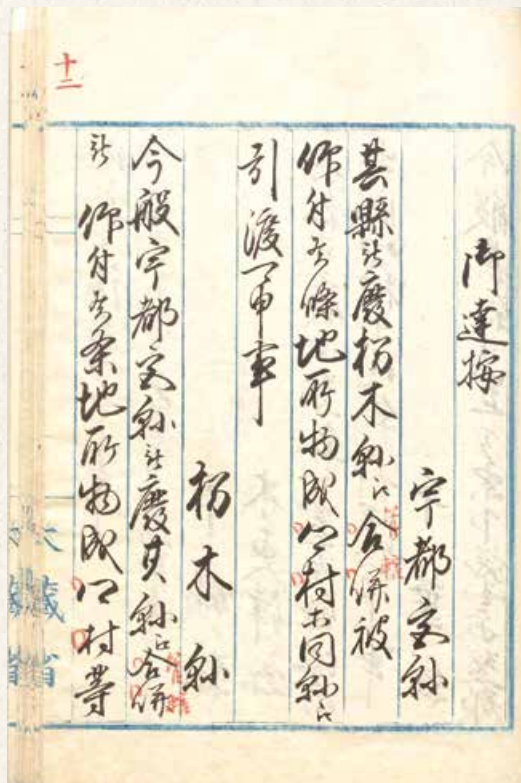 十二
御達按
宇都宮縣
其縣被廢栃木縣ニ合併被
仰付候條地所物成郷村等同縣ニ
引渡可申事
栃木縣
今般宇都宮縣被廢其縣ニ合併
被 仰付候条地所物成郷村等
大藏省